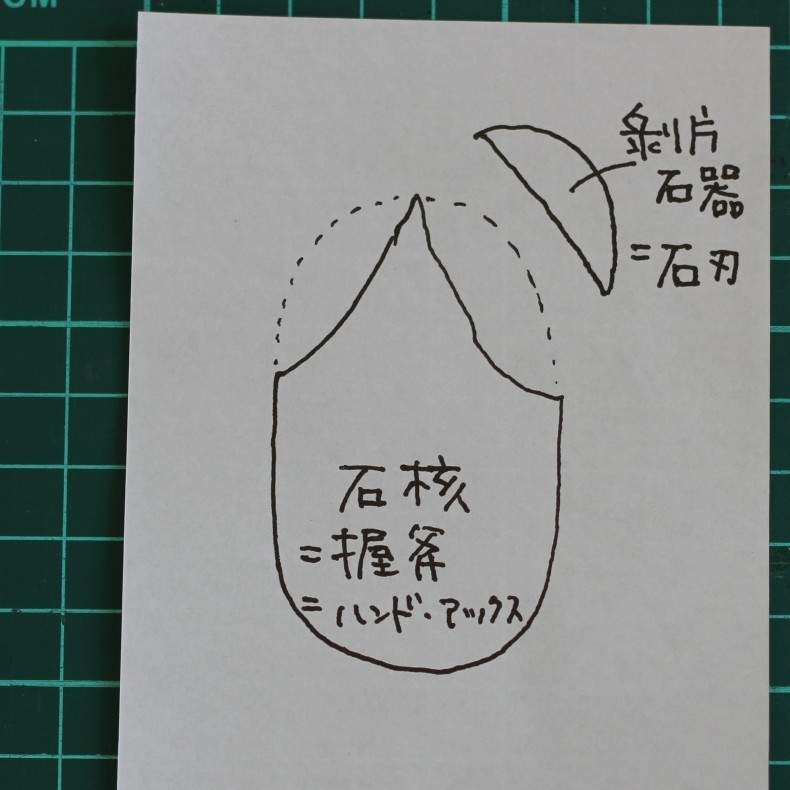 OM
剥片
石器
=石刃
石核
=握斧
=ハンド・アックス